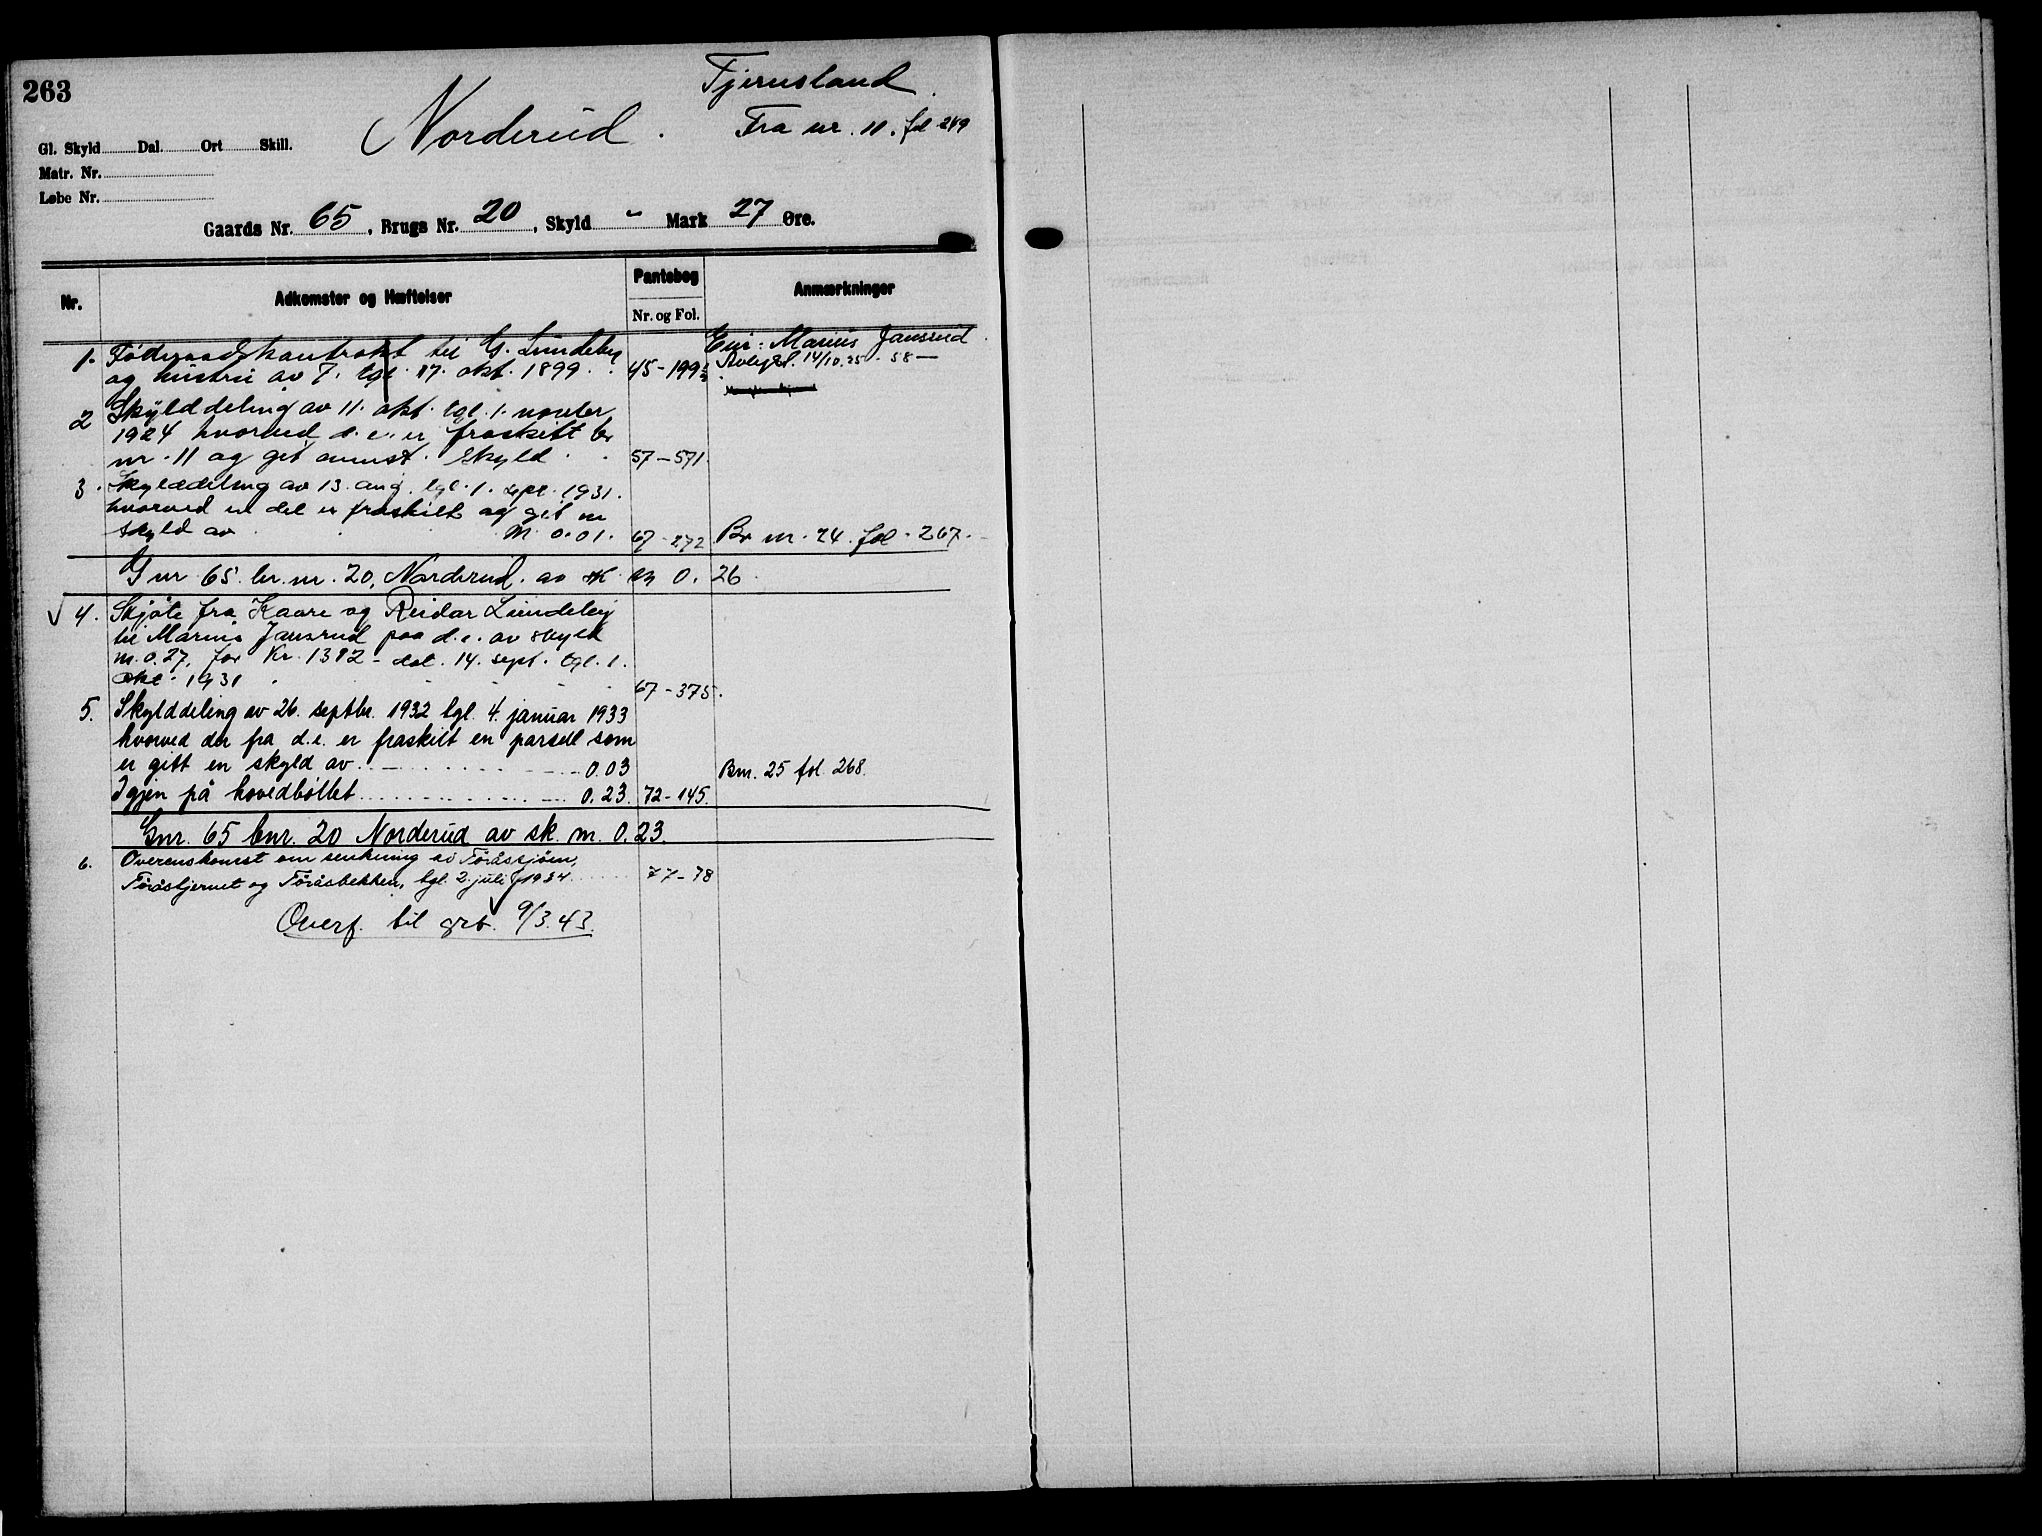 263
Fjernsland
Norderud.
Fra nr. 11. fol 249
Gl. Skyld Dal. Ort Skill.
Matr. Nr.
Løbe Nr.
Gaards Nr. 65, Brugs Nr. 20, Skyld " Mark 27 Øre.
Nr. Adkomster og Hæftelser Pantebog Anmærkninger
Nr. og Fol.
Eier: Marius Jansrud.
1. Føderaadskontrakt til G. Lundeby
og hustru av 7. tgl. 17. okt. 1899. 45-199 Avlyst. 14/10.25 - 58 -
2 Skylddeling av 11. okt. tgl. 1. novbr
1924 hvorved d. e. er fraskilt br
nr. 11 og git anmst. skyld. 57-571.
3. Skylddeling av 13. aug. tgl. 1. sept. 1931.
hvorved en del er fraskilt og git en
skyld av M. 0.01. 67-272 Br nr. 24. fol. 267.
Gnr 65. br. nr. 20, Norderud. av sk m 0. 26.
√ 4. Skjøte fra Kaare og Reidar Lundeby
til Marius Jansrud paa d. e. av skyld
m. 0.27, for Kr. 1382 - dat. 14. sept. tgl. 1.
okt. 1931 67-375.
5. Skylddeling av 26. septbr. 1932 tgl. 4. januar 1933
hvorved der fra d. e. er fraskilt en parsell som
er gitt en skyld av 0.03 Bnr. 25 fol. 268.
Igjen på hovedbøllet 0.23. 72-145.
Gnr. 65 bnr. 20 Norderud av sk. m. 0.23.
6. Overenskomst om senkning av Føråssjøen,
Føråstjernet og Føråsbekken, tgl. 2. juli 1934. 77-78
Overf. til grb. 9/3.43.